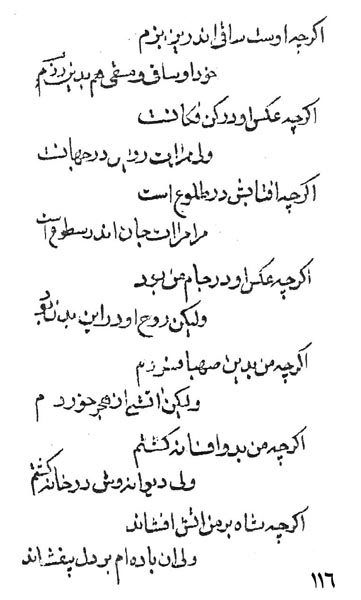 اگرچه اوست ساقی اندرین بزم
خود او ساقی و مسقی هم بدین رزم
اگرچه عکس او در کن فکانست
ولی مرات رویش در جهانست
اگرچه افتابش در طلوع است
مرا مرات جان اندر سطوع است
اگرچه عکس او در جام من بود
ولیکن روح او در این بدن بود
اگرچه من بدین صهبا
ولیکن اتشی از هجر خوردم
اگرچه من بدو افسانه گشتم
ولی دیوانه وش در خانه گشتم
اگرچه شاه بر من اتش افشاند
ولی ان باده ام بر دل بیفشاند
۱۱۶